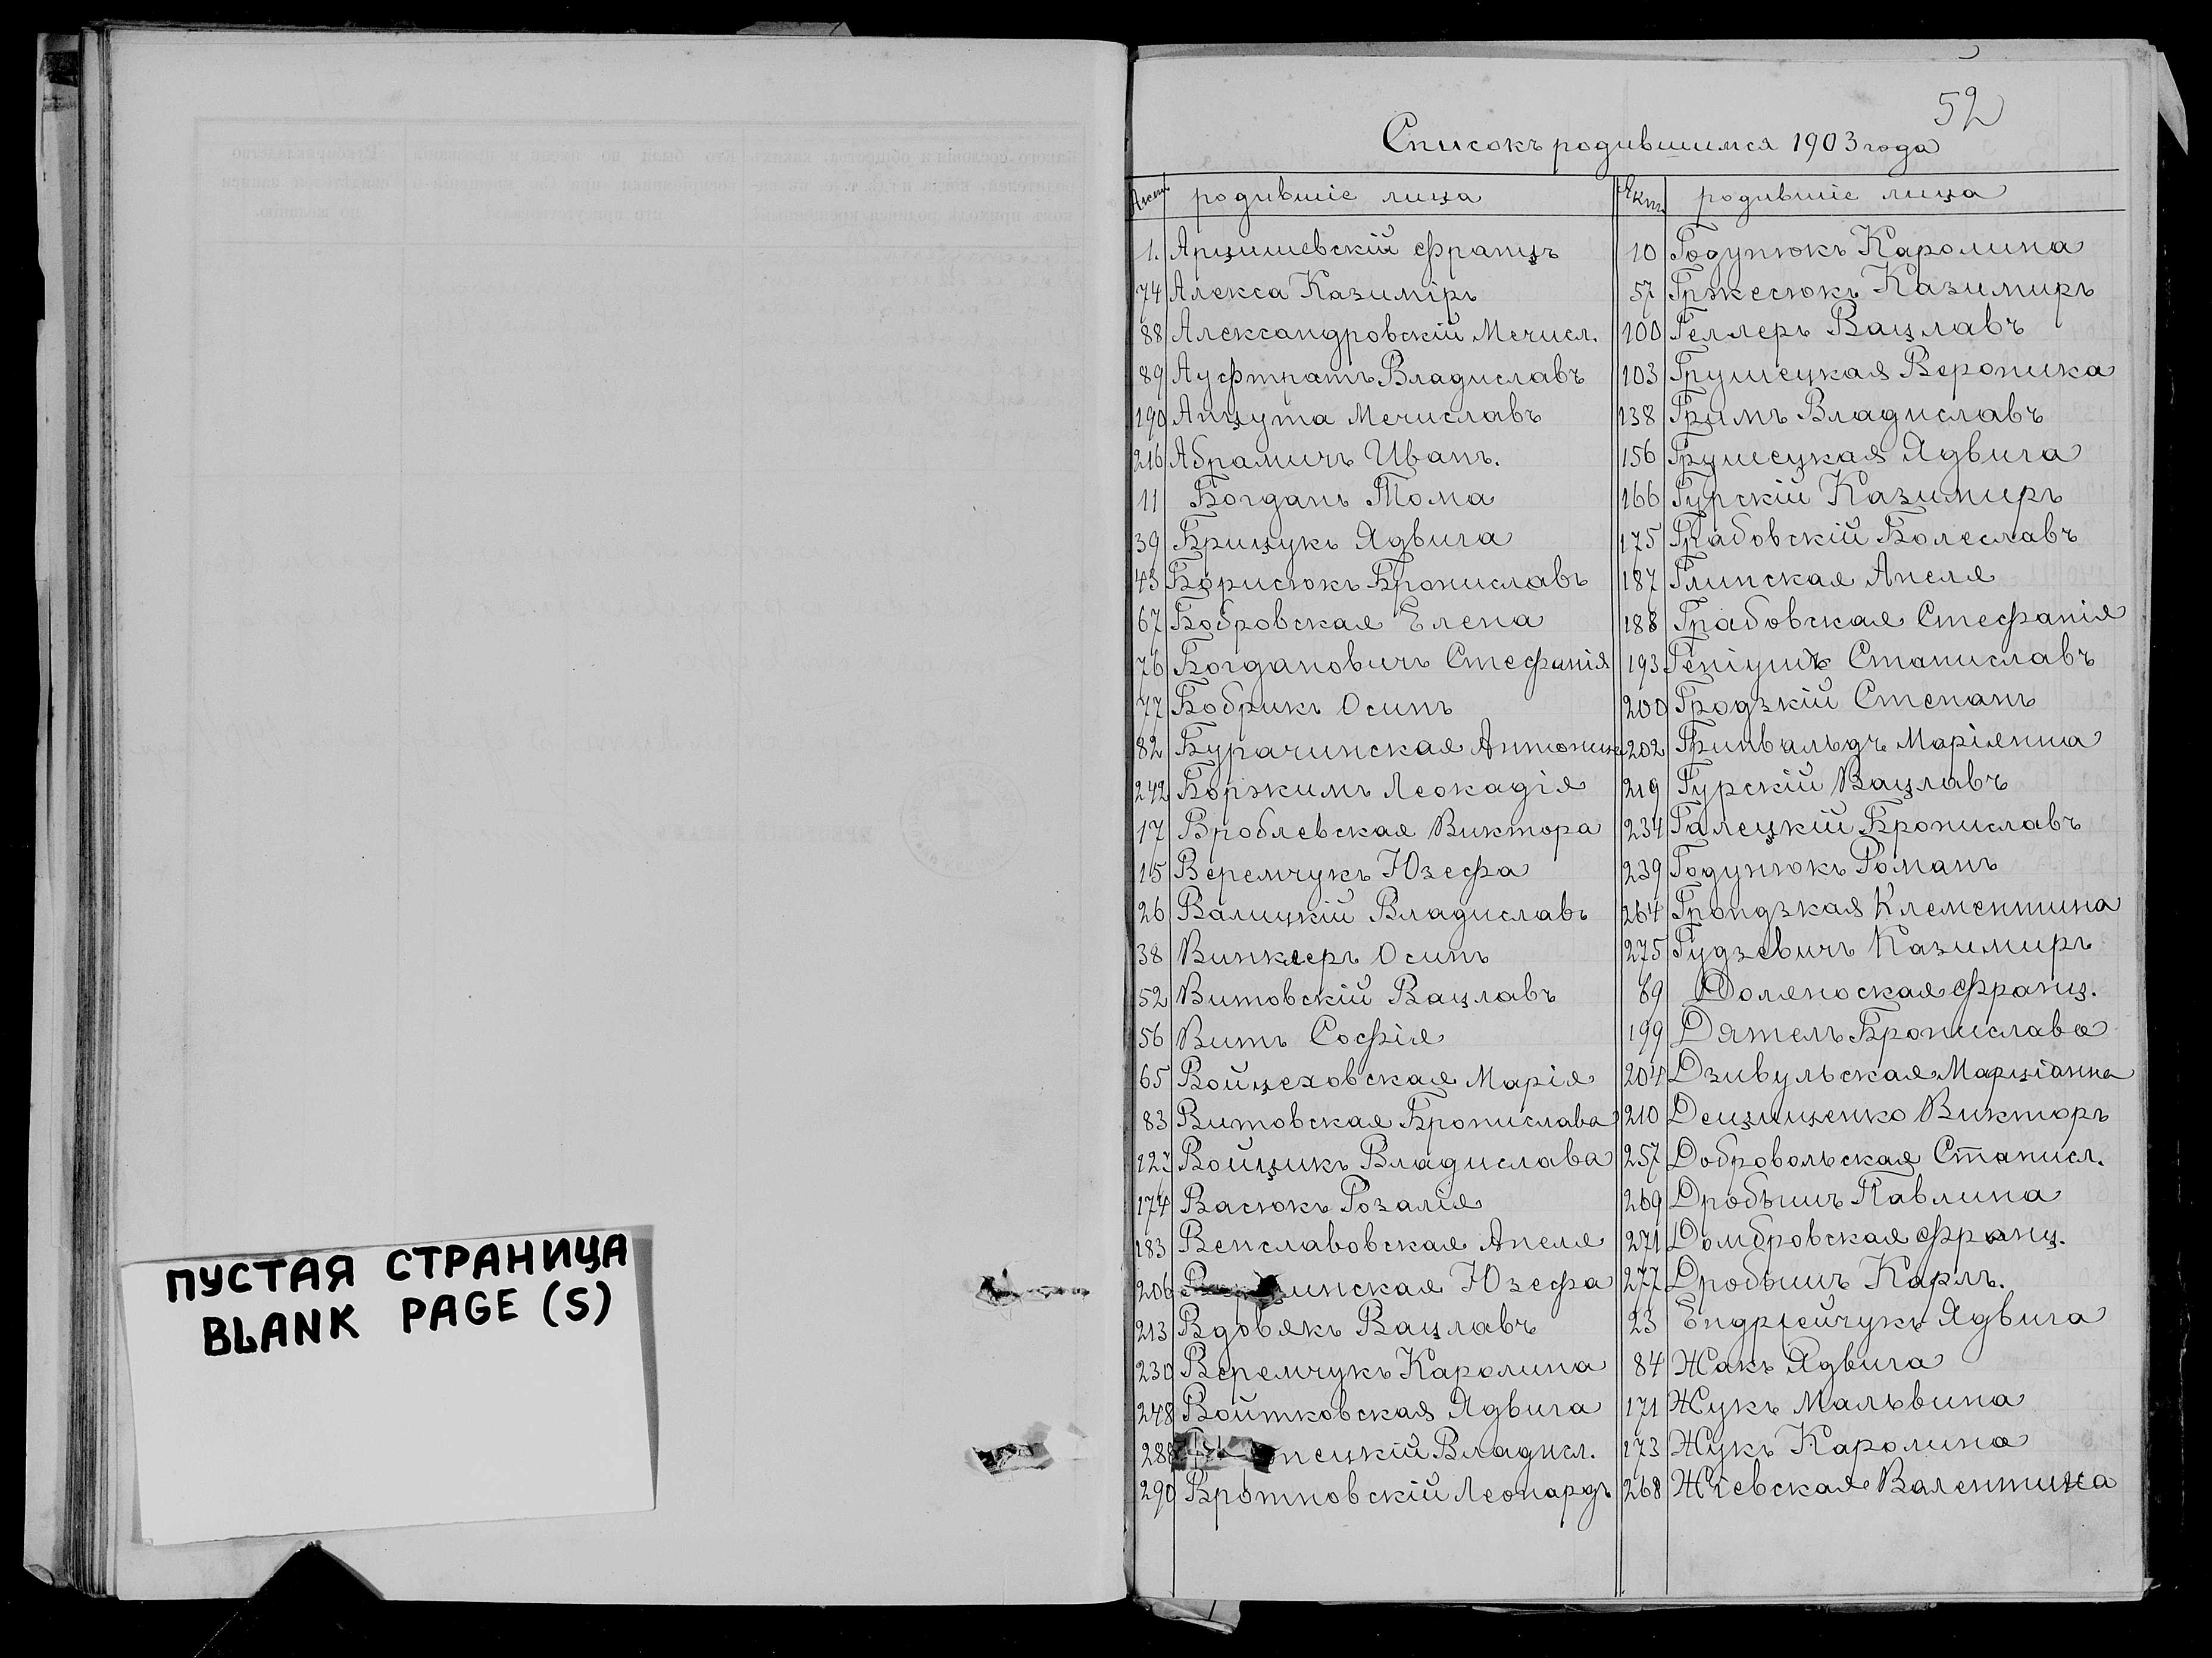 ПУСТАЯ СТРАНИЦА
BLANK PAGE (S)
52
Списокъ родившимся 1903 года
Акт родившіе лица
1. Арцишевскій Францъ
74 Алекса Казиміръ
88 Александровскій Мечисл.
89 Ауфтратъ Владиславъ
190 Анцута Мечиславъ
216 Абрамичъ Иванъ.
11 Богданъ Тома
39 Брицукъ Ядвига
43 Борисюкъ Брониславъ
67 Бобровская Елена
76 Богдановичъ Стефанія
77 Бобрикъ Осипъ
82 Бурачинская Антонина
242 Боржимъ Леокадія
17 Вроблевская Виктора
15 Веремчукъ Юзефа
26 Валицкій Владиславъ
38 Винклеръ Осипъ
52 Витовскій Вацлавъ
56 Витъ Софія
65 Войцеховская Марія
83 Витовская Бронислава
127 Войцикъ Владислава
174 Васюкъ Розалія
183 Венславовская Анеля
206 инская Юзефа
213 Вдовякъ Вацлавъ
230 Веремчукъ Каролина
248 Войтковская Ядвига
288 нецкій Владисл.
290 Вротновскій Леонардъ
Акт родившіе лица
10 Годунюкъ Каролина
57 Гржесюкъ Казимиръ
100 Геллеръ Вацлавъ
103 Грушецкая Вероника
138 Гримъ Владиславъ
156 Грушецкая Ядвига
166 Гурскій Казимиръ
175 Грабовскій Болеславъ
187 Глинская Анеля
188 Грабовская Стефанія
193 Геніушъ Станиславъ
200 Гродзкій Степанъ
202 Гринвальдъ Маріянна
219 Гурскій Вацлавъ
234 Галецкій Брониславъ
239 Годунюкъ Романъ
264 Грондзкая Клементина
275 Гудзевичъ Казимиръ
69 Доляноская Франц.
199 Дятелъ Бронислава
204 Дзивульская Марціанна
210 Децищенко Викторъ
257 Добровольская Станисл.
269 Дробышъ Павлина
271 Домбровская Франц.
277 Дробышъ Карлъ.
23 Ендрейчукъ Ядвига
84 Жакъ Ядвига
171 Жукъ Мальвина
173 Жукъ Каролина
268 Жіевская Валентина